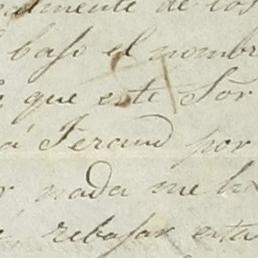 almente de los
bajo el nombre
que este Sor
á Feraud por
nada me ha
rebajar esta